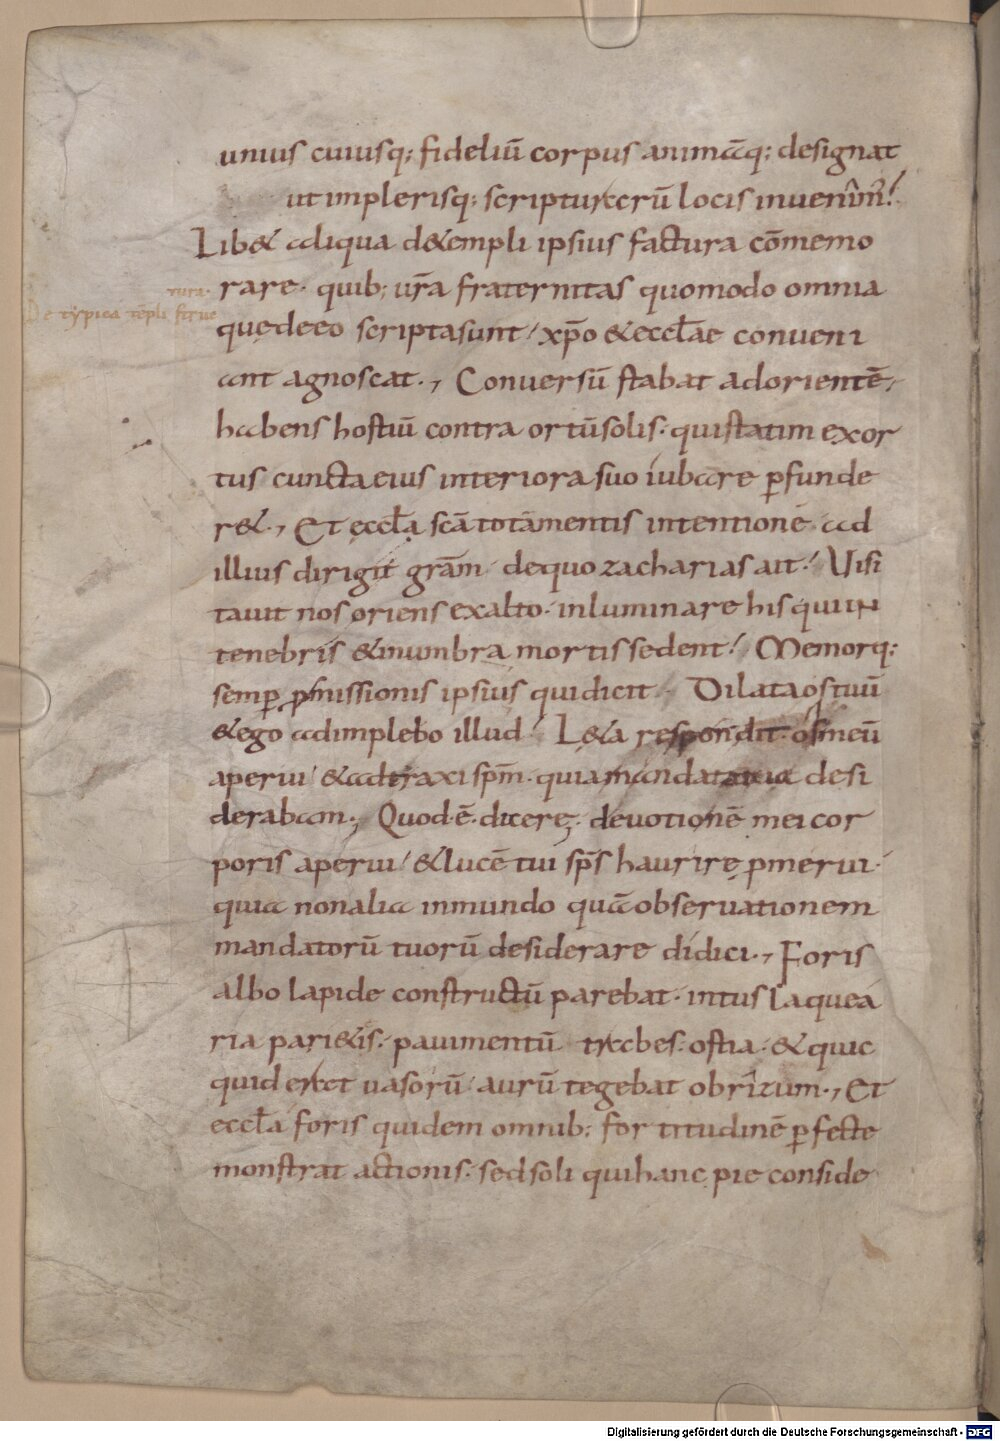 unius cuiusq; fideliū corpus animāq; designat
ut in plerisq; scripturarū locis inuenim᷒.
Lib& aliqua de templi ipsius factura cōmemo
rare. quib; ur̄a fraternitas quomodo omnia
rura.
De typica tēpli strue
quę de eo scripta sunt / xp̄o & eccl̄ae conueni
ant agnoscat., Conuersū stabat ad orientē,
habens hostiū contra ortū solis. qui statim exor
tus cuncta eius interiora suo iubare ꝑfunde
r&., Et eccl̄a scā totā mentis intentionē ad
illius dirigit grām. de quo zacharias ait. Uisi
tauit nos oriens ex alto. inluminare his qui IN
tenebris & in umbra mortis sedent. Memorq;
semꝑ ꝓmissionis ipsius qui dicit. Dilata os tuū
& ego adimplebo illud. L&a respondit. os meū
aperui / & adtraxi sp̄m. quia mandata tua desi
derabam., Quod.ē. dicere,. deuotionē mei cor
poris aperui / & lucē tui sp̄s haurire ꝓmerui.
quia non alia in mundo quā obseruationem
mandatorū tuorū desiderare didici., Foris
albo lapide constructū parebat. intus laquea
ria pari&is. pauimentū trabes. ostia. & quic
quid erat uasorū / aurū tegebat obrizum., Et
eccl̄a foris quidem omnib; fortitudinē ꝑfecte
monstrat actionis. sed soli qui hanc pie conside
Digitalisierung gefördert durch die Deutsche Forschungsgemeinschaft - DFG